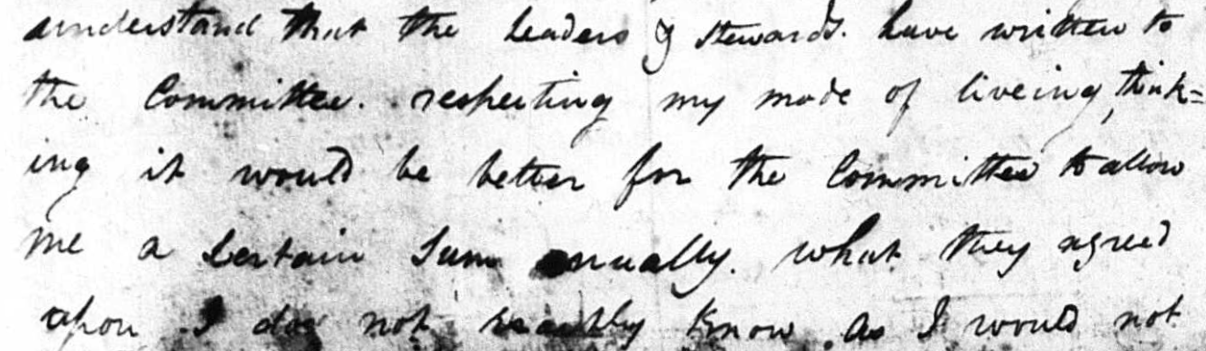 understand that the leaders & stewards. have written to
the Committee. respecting my mode of liveing, think=
ing it would be better for the Committee to allow
me a Certain Sum anually. what they agreed
upon I do not exactly know. as I would not